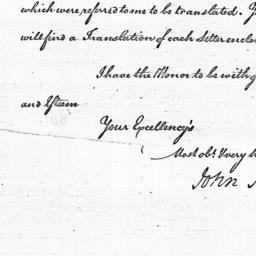 which were refered to me to be translated. Y
will find a Translation of each Letter enclo
I have the Honor to be with g
and Esteem
Your Excellency's
Most obt. & very h
John